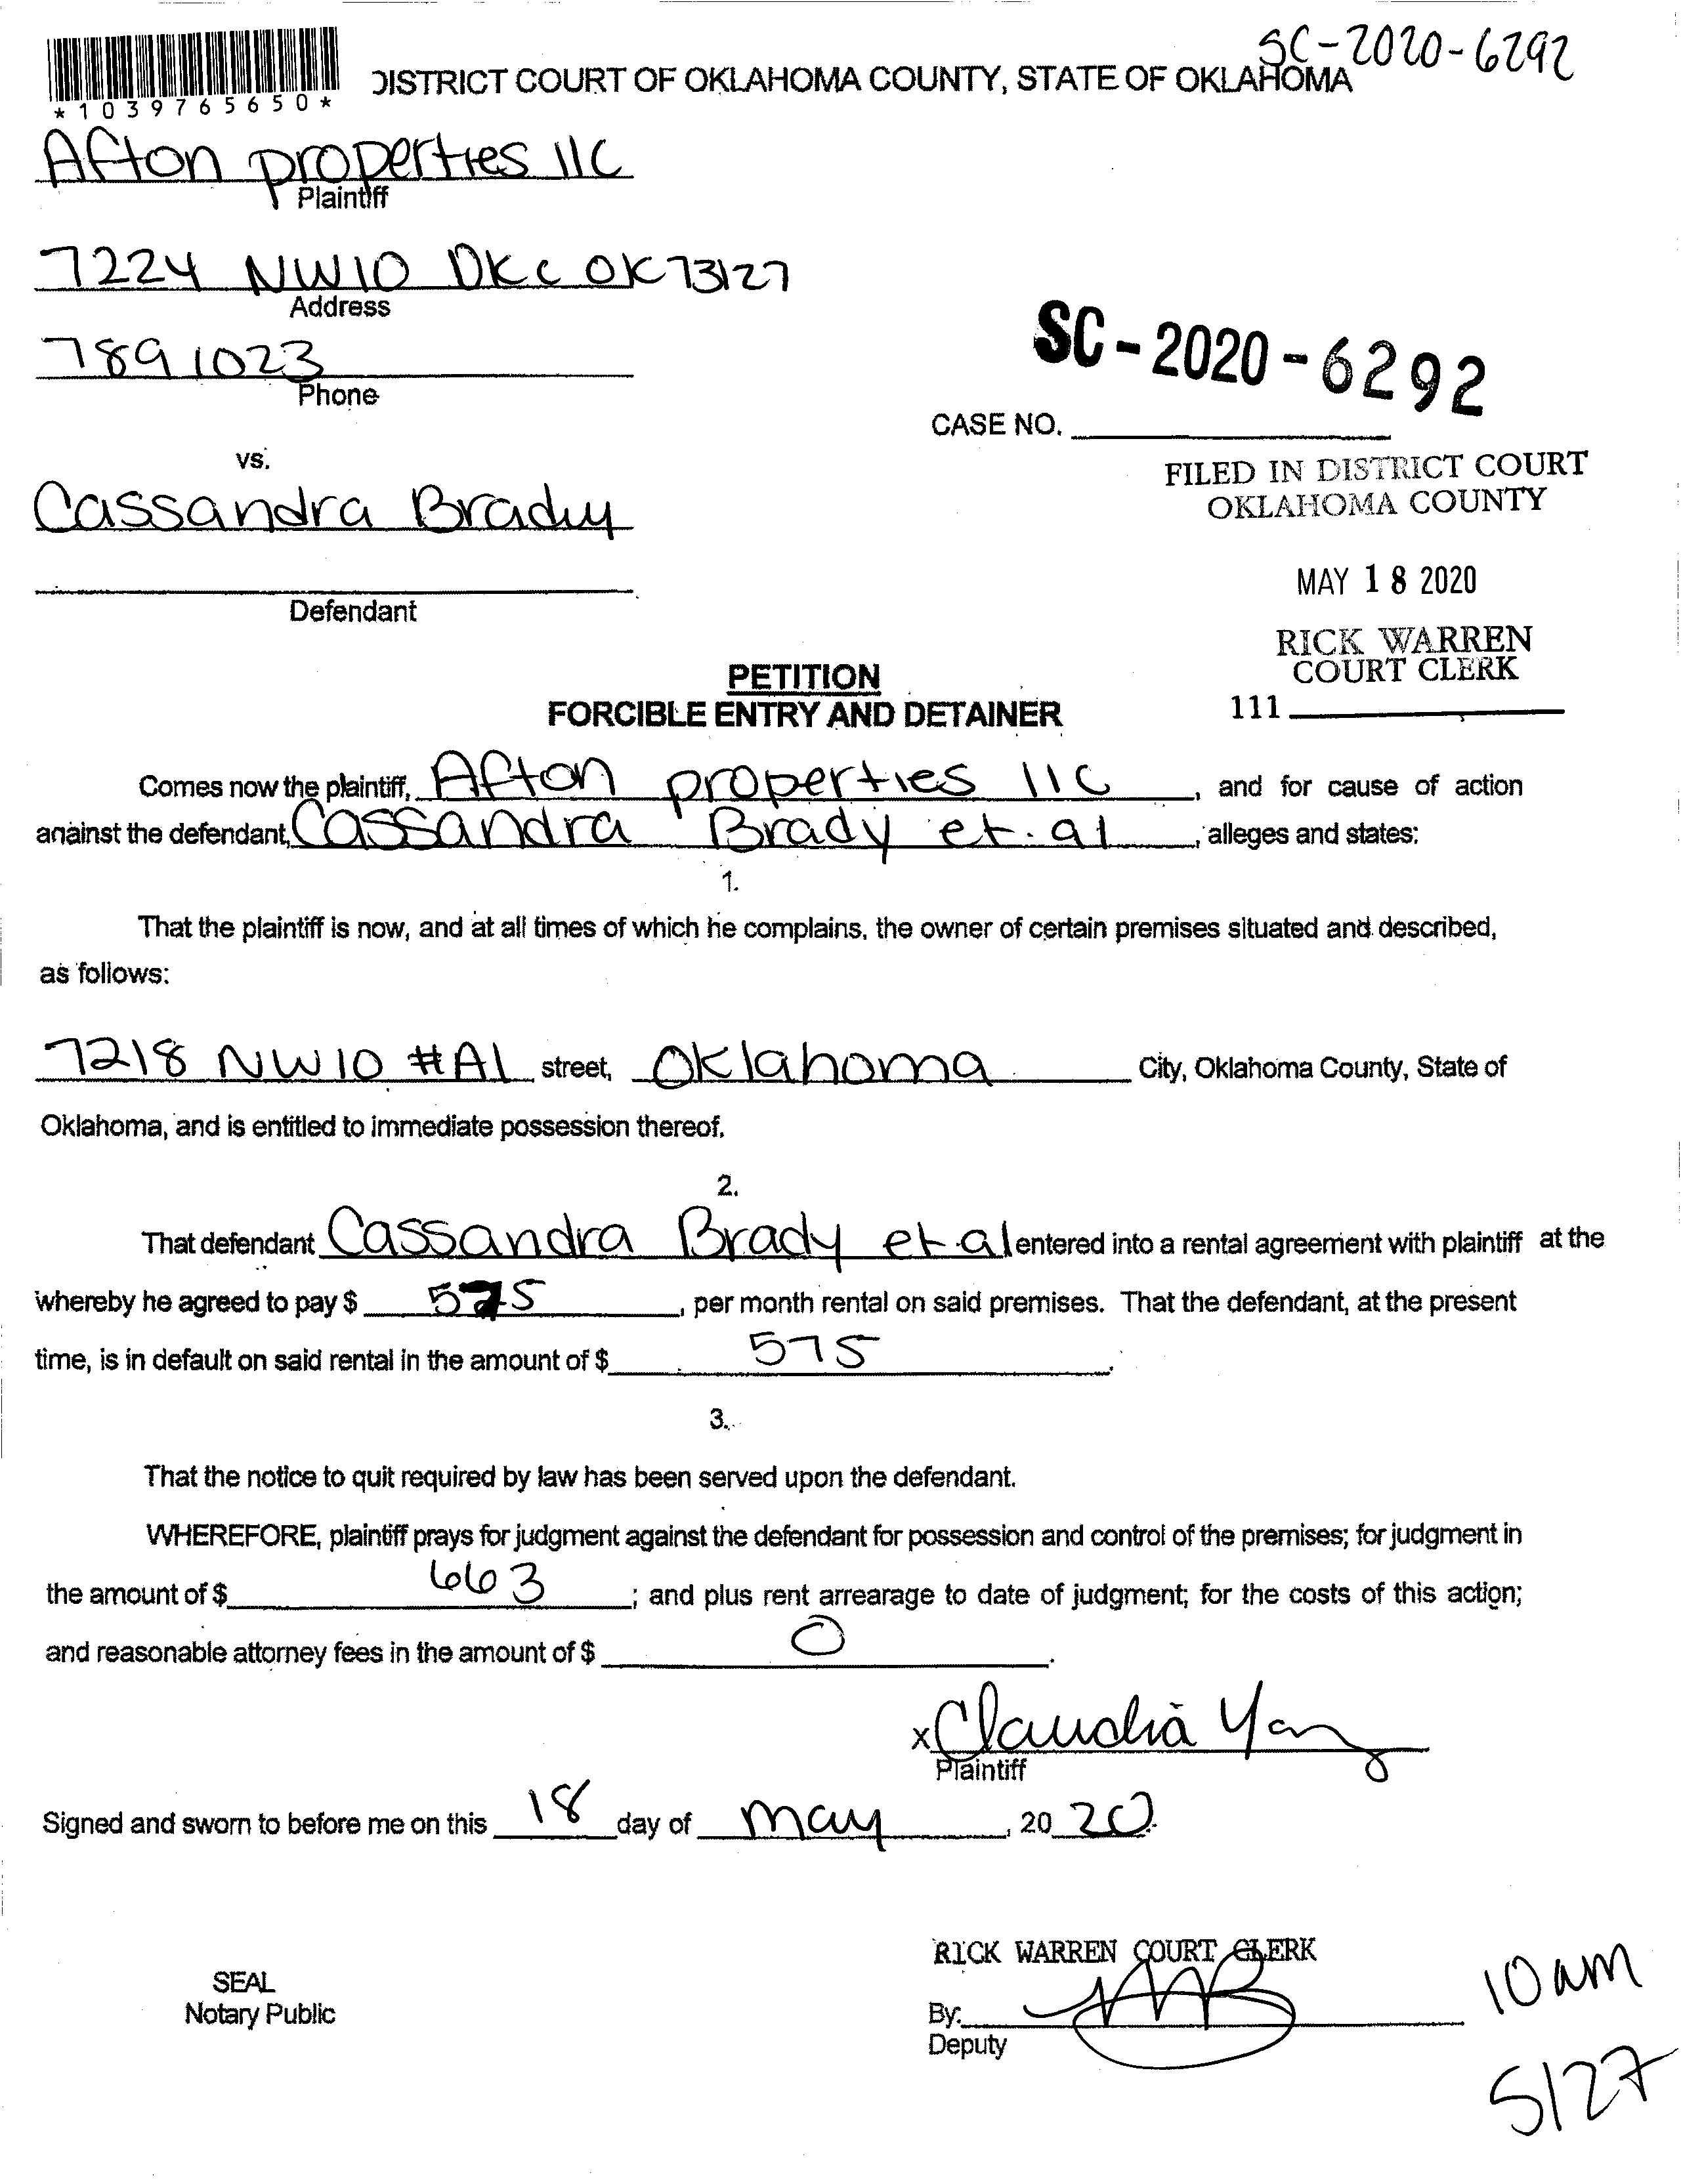 SC-2020-6292
DISTRICT COURT OF OKLAHOMA COUNTY, STATE OF OKLAHOMA
*1039765650*
Afton properties llc
Plaintiff
7224 NW10 OKC OK 73127
Address
789 1023
Phone
SC-2020-6292
CASE NO.
vs.
FILED IN DISTRICT COURT
OKLAHOMA COUNTY
Cassandra Brady
MAY 18 2020
Defendant
RICK WARREN
COURT CLERK
111
PETITION
FORCIBLE ENTRY AND DETAINER
Comes now the plaintiff, Afton properties llc, and for cause of action
against the defendant, Cassandra Brady et. al, alleges and states:
1.
That the plaintiff is now, and at all times of which he complains, the owner of certain premises situated and described,
as follows:
7218 NW10 #A1 street, Oklahoma City, Oklahoma County, State of
Oklahoma, and is entitled to immediate possession thereof.
2.
That defendant Cassandra Brady et al entered into a rental agreement with plaintiff at the
whereby he agreed to pay $ 575, per month rental on said premises. That the defendant, at the present
time, is in default on said rental in the amount of $ 575.
3.
That the notice to quit required by law has been served upon the defendant.
WHEREFORE, plaintiff prays for judgment against the defendant for possession and control of the premises; for judgment in
the amount of $ 663; and plus rent arrearage to date of judgment; for the costs of this action;
and reasonable attorney fees in the amount of $ 0.
x Claudia Yang
Plaintiff
Signed and sworn to before me on this 18 day of may, 20 20.
RICK WARREN COURT CLERK
SEAL
Notary Public
By:
Deputy
10 am
5/27